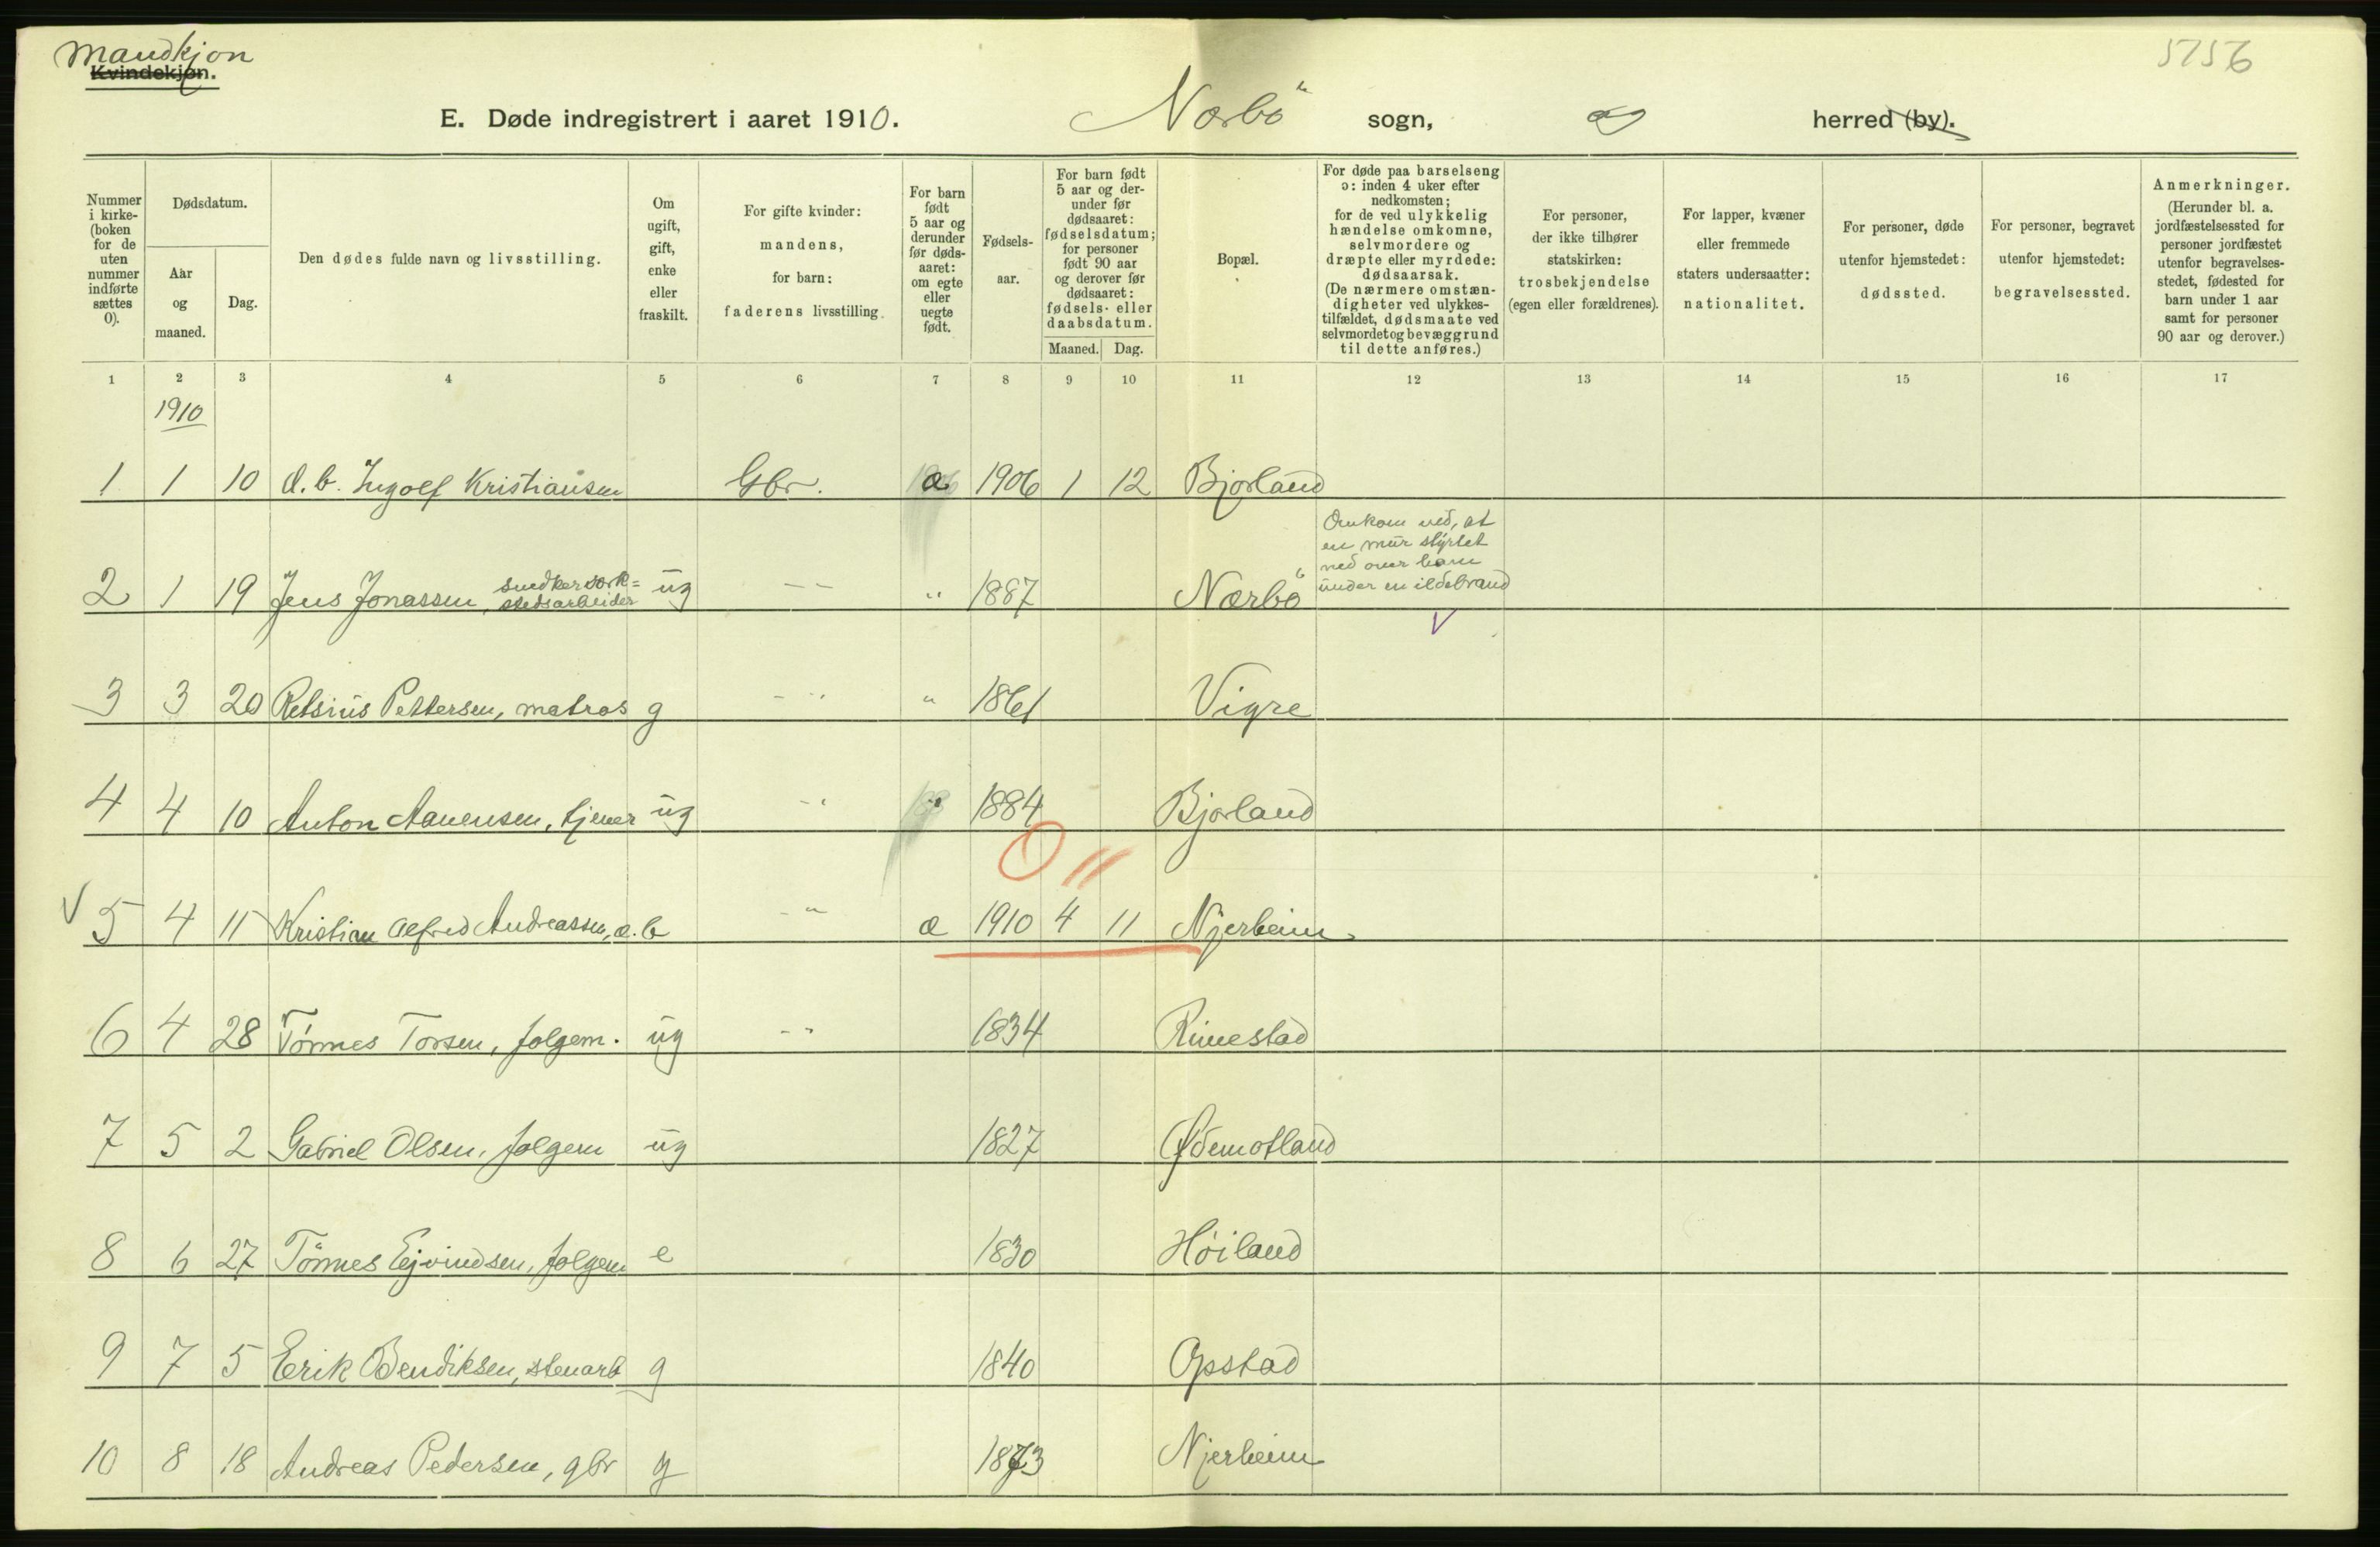 Mandkjøn
Kvindekjøn.
5756
E. Døde indregistrert i aaret 1910. Nærbö sogn, og herred (by).
Nummer i kirke- (boken for de uten nummer indførte sættes 0).
Dødsdatum.
Aar og maaned.
Dag.
Den dødes fulde navn og livsstilling.
Om ugift, gift, enke eller fraskilt.
For gifte kvinder: mandens, for barn: faderens livsstilling.
For barn født 5 aar og derunder før døds- aaret: om egte eller uegte født.
Fødsels- aar.
For barn født 5 aar og der- under før dødsaaret: fødselsdatum; for personer født 90 aar og derover før dødsaaret: fødsels- eller daabsdatum.
Maaned. Dag.
Bopæl.
For døde paa barselseng ɔ: inden 4 uker efter nedkomsten; for de ved ulykkelig hændelse omkomne, selvmordere og dræpte eller myrdede: dødsaarsak. (De nærmere omstæn- digheter ved ulykkes- tilfældet, dødsmaate ved selvmordet og bevæggrund til dette anføres.)
For personer, der ikke tilhører statskirken: trosbekjendelse (egen eller forældrenes).
For lapper, kvæner eller fremmede staters undersaatter: nationalitet.
For personer, døde utenfor hjemstedet: dødssted.
For personer, begravet utenfor hjemstedet: begravelsessted.
Anmerkninger. (Herunder bl. a. jordfæstelsessted for personer jordfæstet utenfor begravelses- stedet, fødested for barn under 1 aar samt for personer 90 aar og derover.)
1 2 3 4 5 6 7 8 9 10 11 12 13 14 15 16 17
1910
1 1 10 æ. b. Ingolf Kristiansen Gbr. æ 1906 1 12 Bjorland
Omkom ved, at
en mur styrtet
ned over ham
under en ildebrand
2 1 19 Jens Jonassen, snedkerverk= stedsarbeider ug -"- " 1887 Nærbö
V
3 3 20 Retsius Pettersen, matros g -"- " 1861 Vigre
4 4 10 Anton Aanensen, tjener ug -"- " 1884 Bjorland
0 11
V 5 4 11 Kristian Alfred Andreassen, æ. b -"- æ 1910 4 11 Njerheim
6 4 28 Tönnes Torsen, folgem. ug -"- 1834 Rimestad
7 5 2 Gabriel Olsen, folgem ug 1827 Ødemotland
8 6 27 Tönnes Ejvindsen, folgem e 1830 Höiland
9 7 5 Erik Bendiksen, stenarb g 1840 Opstad
10 8 18 Andreas Pedersen, gbr g 1873 Njerheim